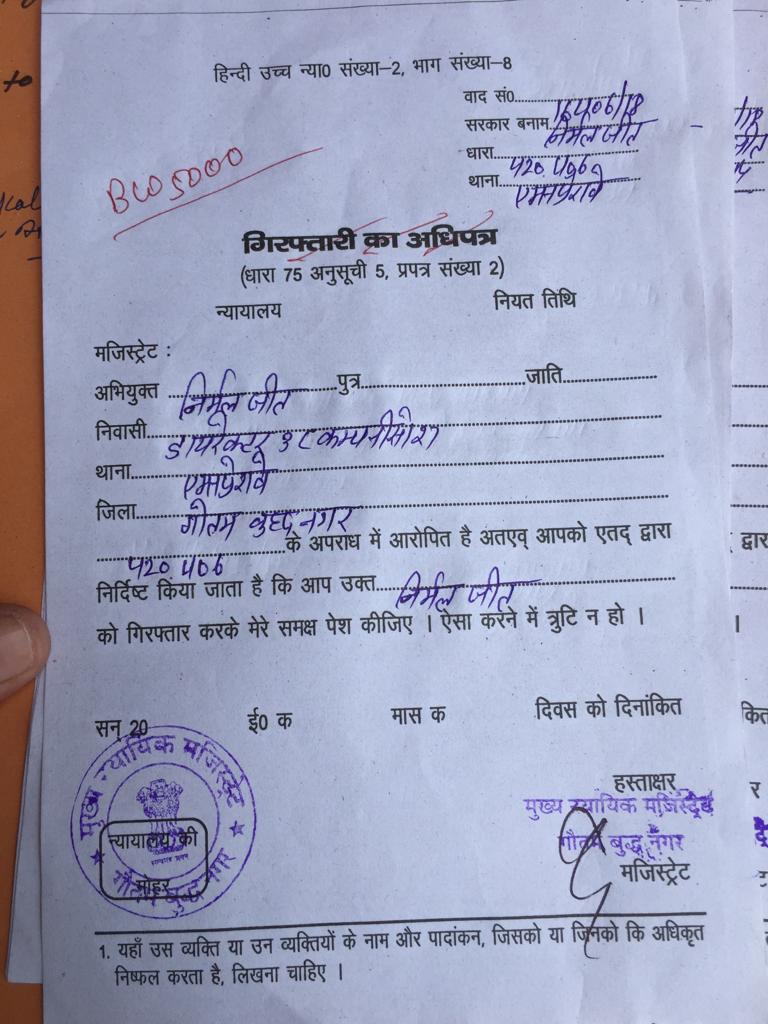 हिन्दी उच्च न्या0 संख्या–2, भाग संख्या–8
वाद सं0
सरकार बनाम निर्मल जीत
धारा 420, 406
थाना
BW 5000
गिरफ्तारी का अधिपत्र
(धारा 75 अनुसूची 5, प्रपत्र संख्या 2)
न्यायालय नियत तिथि
मजिस्ट्रेट :
अभियुक्त निर्मल जीत पुत्र जाति
निवासी
थाना
जिला गौतम बुद्ध नगर
420, 406 के अपराध में आरोपित है अतएव् आपको एतद् द्वारा
निर्दिष्ट किया जाता है कि आप उक्त निर्मल जीत
को गिरफ्तार करके मेरे समक्ष पेश कीजिए । ऐसा करने में त्रुटि न हो ।
सन् 20 ई0 क मास क दिवस को दिनांकित
मुख्य न्यायिक मजिस्ट्रेट
न्यायालय की
मोहर
गौतम बुद्ध नगर
हस्ताक्षर
मुख्य न्यायिक मजिस्ट्रेट
गौतम बुद्ध नगर
मजिस्ट्रेट
1. यहाँ उस व्यक्ति या उन व्यक्तियों के नाम और पादांकन, जिसको या जिनको कि अधिकृत
निष्फल करता है, लिखना चाहिए ।